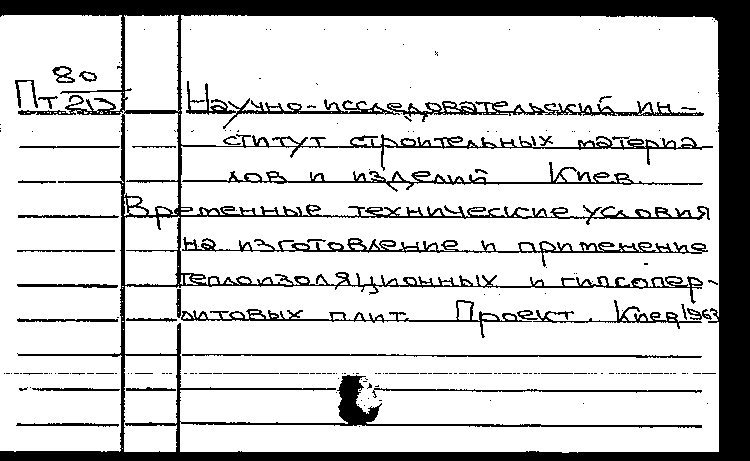 80
Пт 213
Научно-исследовательский ин-
ститут строительных материа-
лов и изделий Киев.
Временные технические условия
на изготовление и применение
теплоизоляционных и гипсопер-
литовых плит. Проект. Киев, 1963